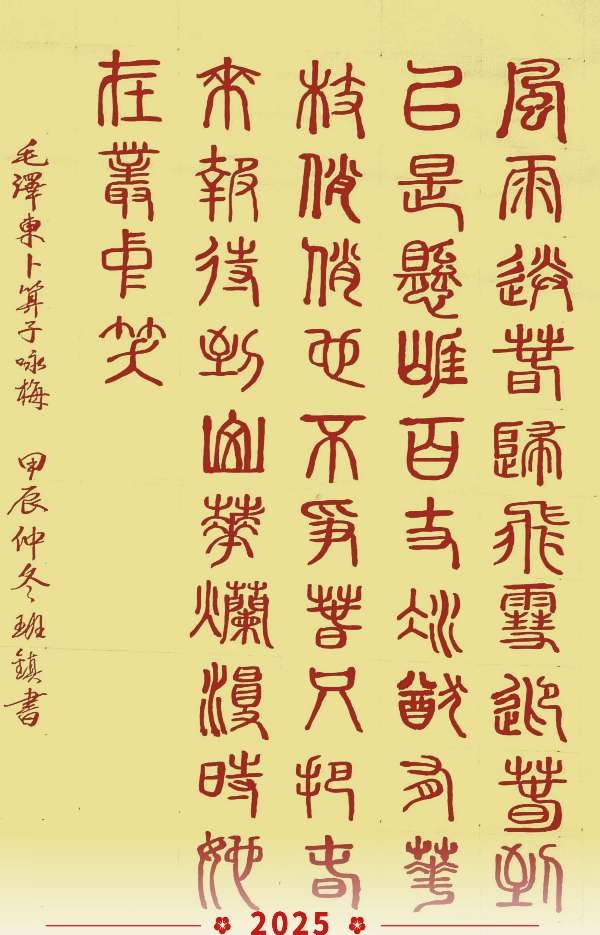 風雨送春歸飛雪迎春到
已是懸崖百丈冰猶有華
枝俏俏也不爭春只把春
來報待到山華爛漫時她
在叢中笑
毛澤東卜算子咏梅 甲辰仲冬班鎮書
2025